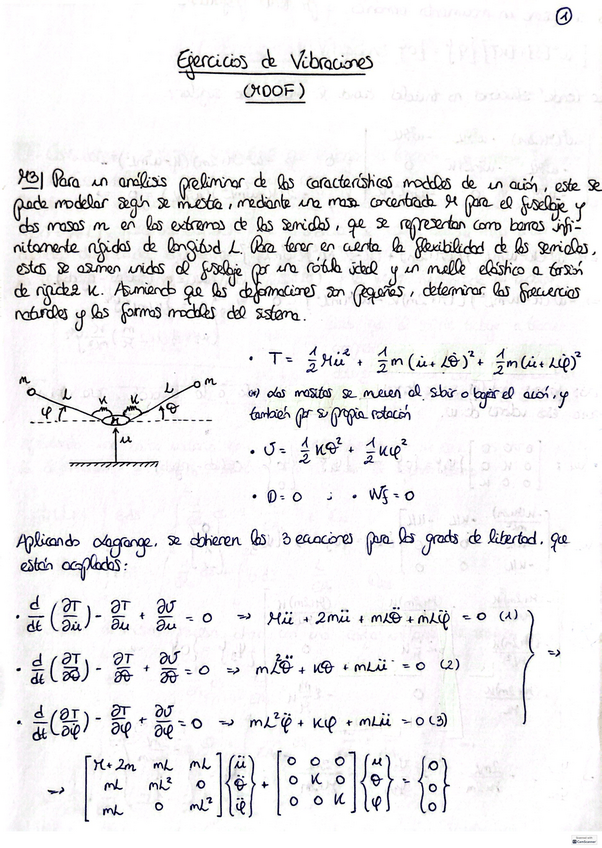 1
Ejercicios de Vibraciones
(MDOF)
M3| Para un análisis preliminar de las características modales de un avión, este se
puede modelar según se muestra, mediante una masa concentrada M para el fuselaje y
dos masas m en los extremos de las semialas, que se representan como barras infi-
nitamente rígidas de longitud L. Para tener en cuenta la flexibilidad de las semialas,
estas se asumen unidas al fuselaje por una rótula ideal y un muelle elástico a torsión
de rigidez K. Asumiendo que las deformaciones son pequeñas, determinar las frecuencias
naturales y las formas modales del sistema.
• T = 1/2 M u̇² + 1/2 m (u̇ + Lθ̇)² + 1/2 m (u̇ + Lφ̇)²
las masitas se mueven al subir o bajar el avión, y
también por su propia rotación
m L K K L m
φ M θ
u
• U = 1/2 Kθ² + 1/2 Kφ²
• D = 0 ; • Wf = 0
Aplicando Lagrange, se obtienen las 3 ecuaciones para los grados de libertad, que
están acopladas:
• d/dt (∂T/∂u̇) - ∂T/∂u + ∂U/∂u = 0 ⇒ Mü + 2mü + mLθ̈ + mLφ̈ = 0 (1)
• d/dt (∂T/∂θ̇) - ∂T/∂θ + ∂U/∂θ = 0 ⇒ mL²θ̈ + Kθ + mLü = 0 (2) ⇒
• d/dt (∂T/∂φ̇) - ∂T/∂φ + ∂U/∂φ = 0 ⇒ mL²φ̈ + Kφ + mLü = 0 (3)
⇒ [M+2m mL mL; mL mL² 0; mL 0 mL²] {ü; θ̈; φ̈} + [0 0 0; 0 K 0; 0 0 K] {u; θ; φ} = {0; 0; 0}
CamScanner